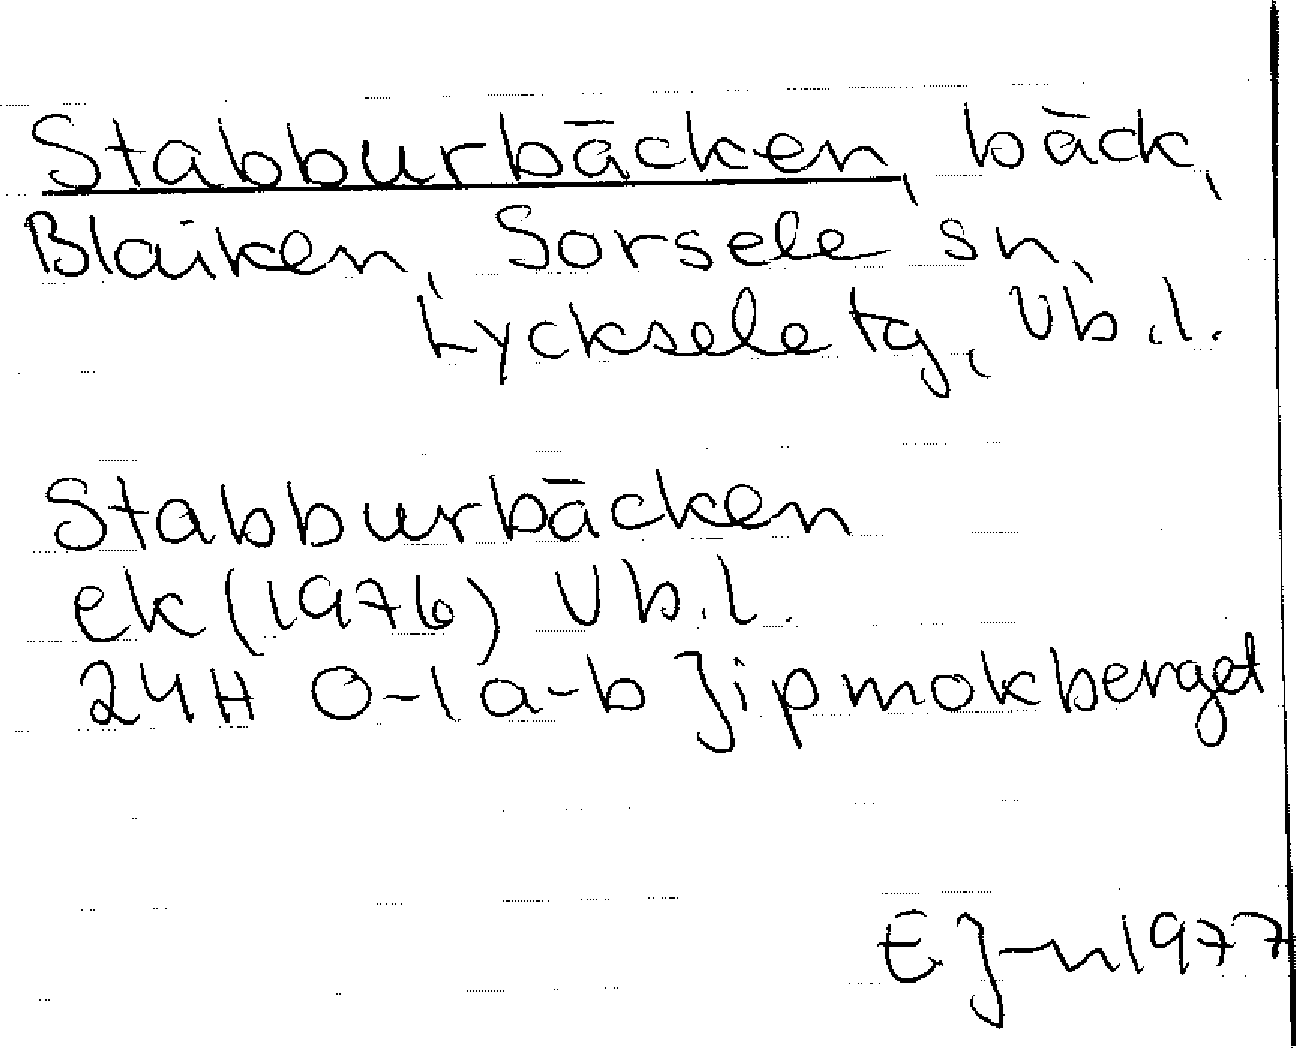 Stabburbäcken, bäck,
Blaiken, Sorsele sn,
Lycksele tg, Vb.l.
Stabburbäcken
ek (1976) Vb.l.
24H 0-1 a-b Jipmokberget
E J-n 1977